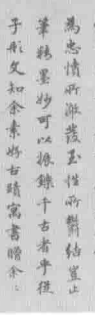 為忠憤所激發至性所鬱結豈止
筆精墨妙可以振鑠千古者乎從
子彤文知余素好古蹟寓書贈余: